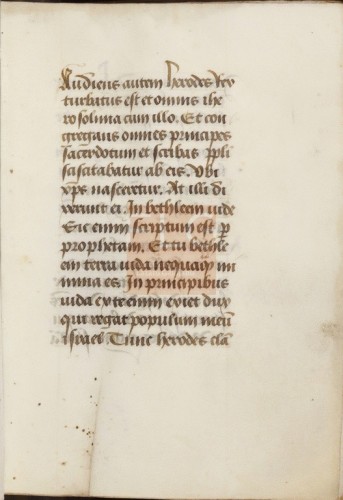 Audiens autem herodes rex
turbatus est et omnis ihe
rosolima cum illo. Et con
gregans omnes principes
sacerdotum et scribas ppli
sciscitabatur ab eis. Vbi
xps nasceretur. At illi di
xerunt ei. In bethleem iude
Sic enim scriptum est p
prophetam. Et tu bethle
em terra iuda nequaq̃ mi
nima es. In principibus
iuda ex te enim exiet dux
qui regat populum meũ
israel Tunc herodes clã